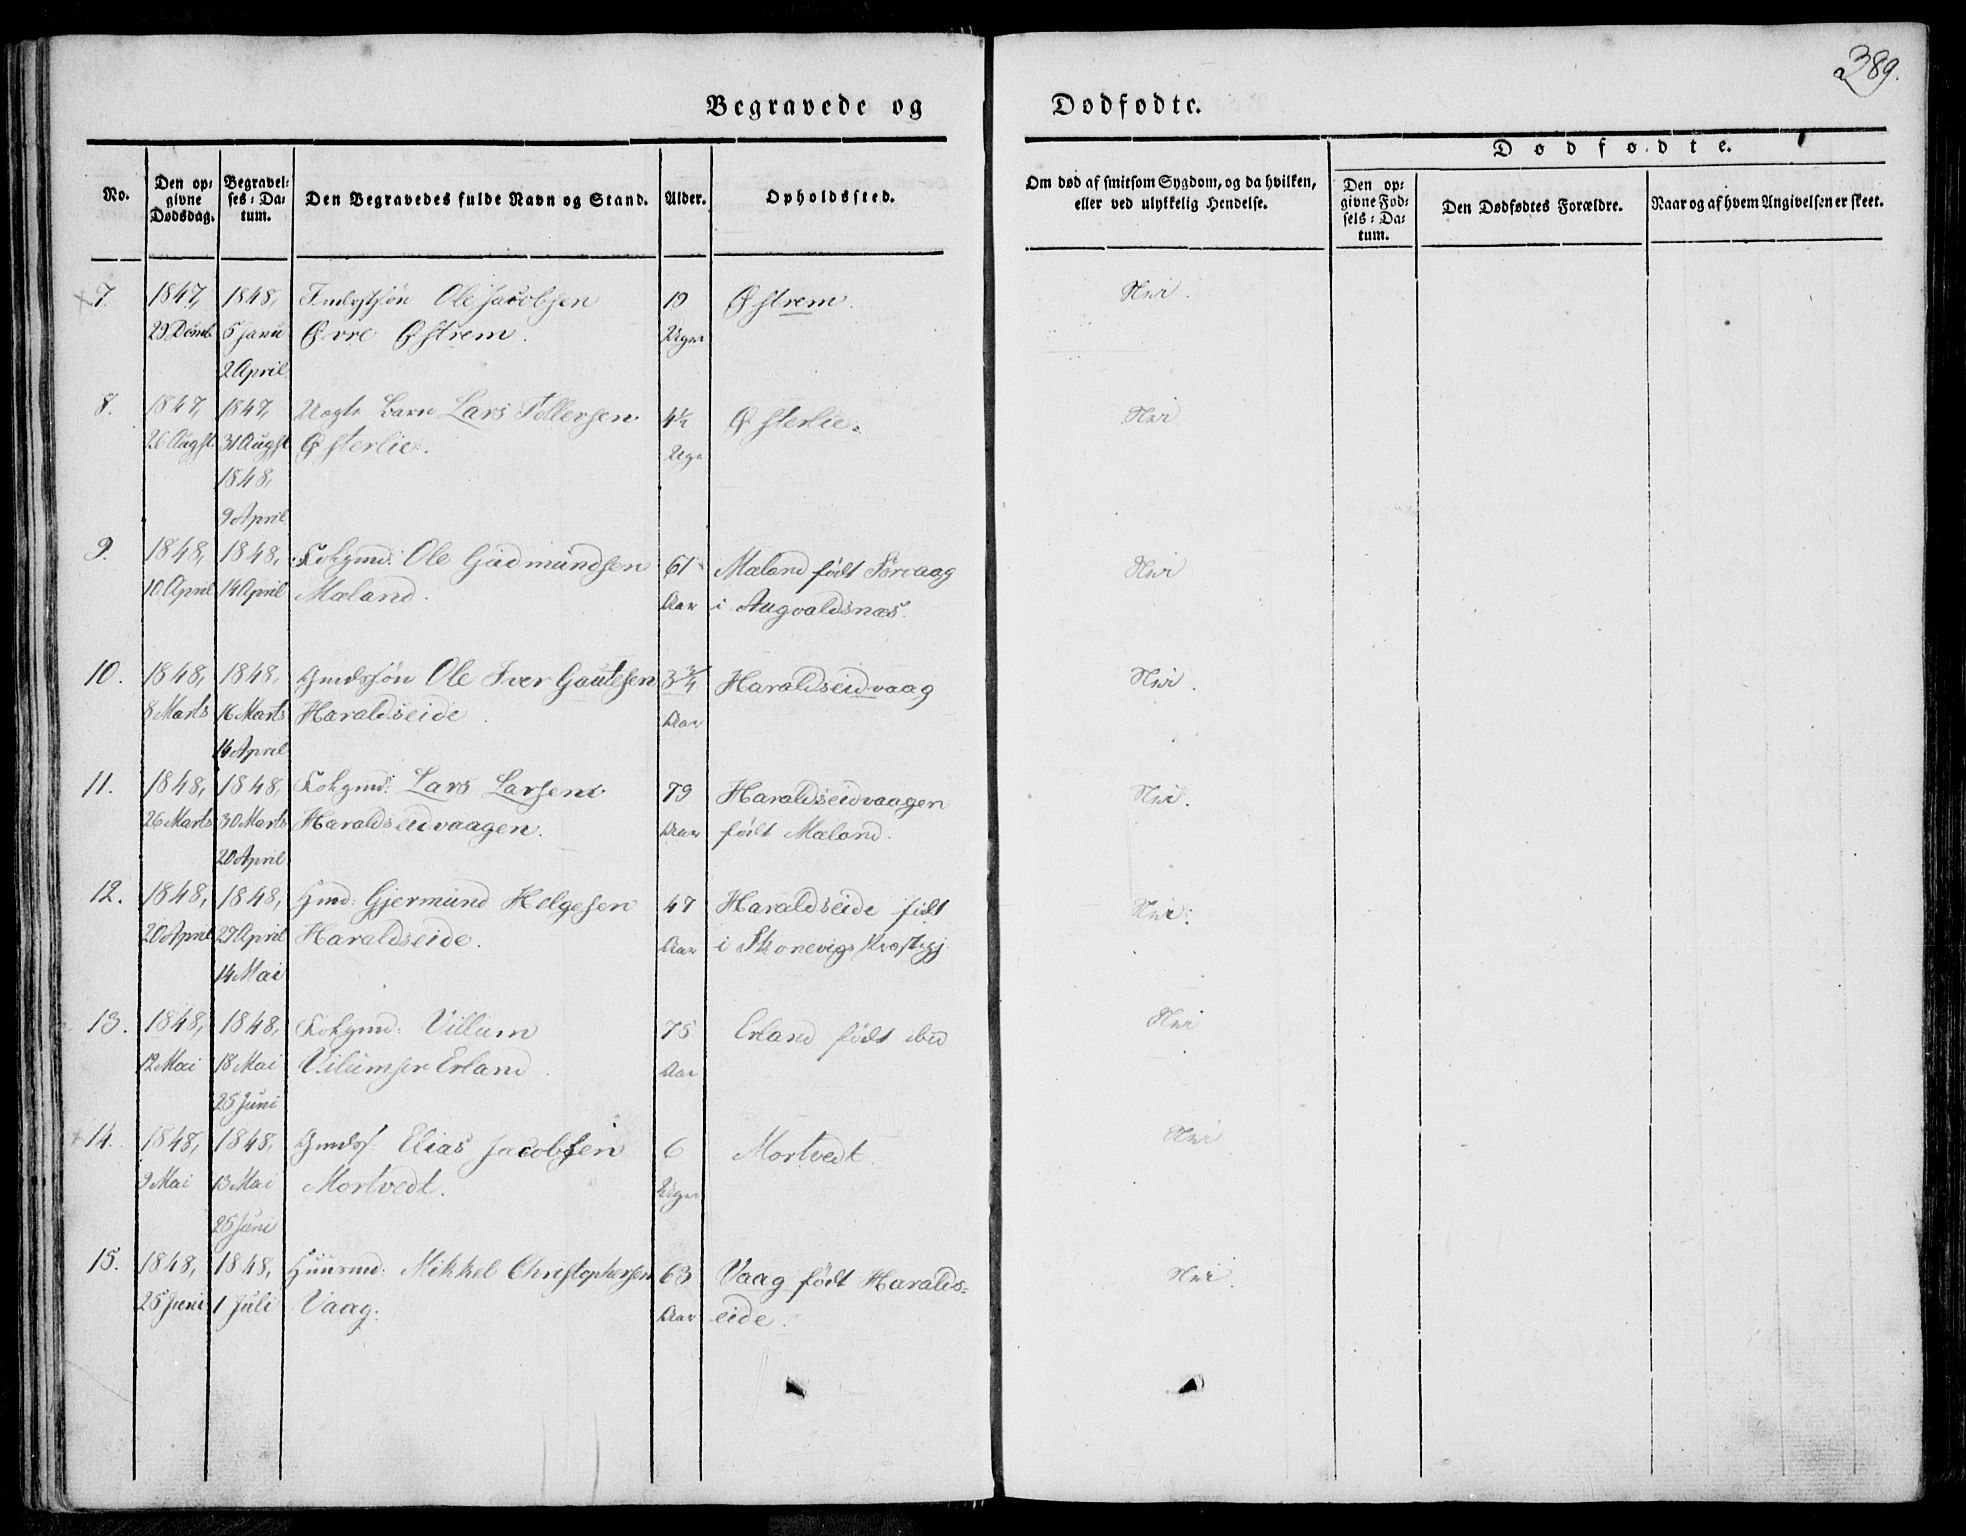 389.
Begravede og Dødfødte.
No.
Den op-
givne
Dødsdag.
Begravel-
ses-Da-
tum.
Den Begravedes fulde Navn og Stand.
Alder.
Opholdssted.
Om død af smitsom Sygdom, og da hvilken,
eller ved ulykkelig Hendelse.
Dødfødte.
Den op-
givne Fød-
sels-Da-
tum.
Den Dødfødtes Forældre.
Naar og af hvem Angivelsen er skeet.
7. 1847, 1848, Ole Jacobsen 19 Østrem. Nei.
29 Decmb. 5 Janu Øvre Østrem. Uger
2 April
8. 1847, 1847, Uægte Barn Lars Tollersen 4½ Østerlie. Nei
26 Augst 31 Augst Østerlie. Uger
1848,
9 April
9. 1848, 1848, Folgmd: Ole Gudmundsen 61 Mæland født Førvaag Nei
10 April 14 April Mæland. Aar i Augvaldsnæs.
10. 1848, 1848, Gmdssøn Ole Iver Gautesen 3¾ Haraldseidvaag Nei.
8 Marts 16 Marts Haraldseide. Aar
14 April
11. 1848, 1848, Folgmd: Lars Larsen 79 Haraldseidvaagen Nei.
26 Marts 30 Marts Haraldseidvaagen. Aar født Mæland.
20 April
12. 1848, 1848, Gmd: Gjermund Helgesen 47 Haraldseide født Nei.
20 April 27 April Haraldseide. Aar i Skonevigs Præstegj
14 Mai
13. 1848, 1848, Folgmd: Villum 75 Erland født ibid Nei
12 Mai 18 Mai Vilumsen Erland. Aar
25 Juni
14. 1848, 1848, Gmdss: Elias Jacobsen 6 Mortvedt. Nei
9 Mai 13 Mai Mortvedt. Uger
25 Juni
15. 1848, 1848, Huusmd: Mikkel Christophersen 63 Vaag født Haralds- Nei.
25 Juni 1 Juli Vaag. Aar eide.